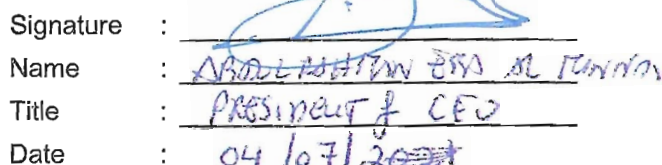 Signature :
Name : ABDULRAHMAN ESSA AL
Title : PRESIDENT & CEO
Date : 04/07/